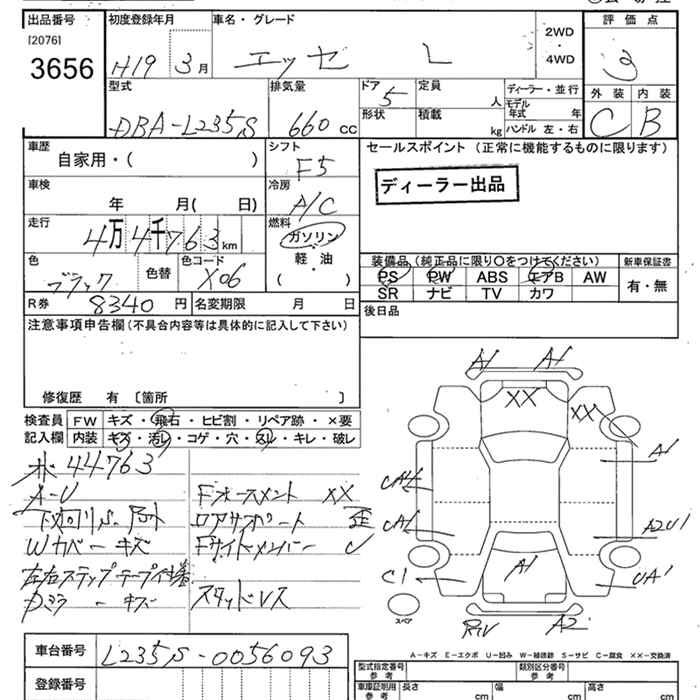 出品番号 初度登録年月 車名・グレード 評価点
[2076]
3656
H19 3月 エッセ L 2WD・4WD 3
型式 排気量 ドア 定員 ディーラー・並行 外装 内装
DBA-L235S 660 cc 5 人 モデル年式 年 C B
形状 積載 kg ハンドル 左・右
車歴 シフト セールスポイント (正常に機能するものに限ります)
自家用・( ) F5
ディーラー出品
車検 冷房
年 月( 日) A/C
走行 燃料
4万4千763km ガソリン
軽・油
( )
色 色替 色コード
ブラック X06
装備品(純正品に限り○をつけてください) 新車保証書
PS PW ABS エアB AW 有・無
SR ナビ TV カワ
R券 8340円 名変期限 月 日
後日品
注意事項申告欄(不具合内容等は具体的に記入して下さい)
修復歴 有 〔箇所 〕
検査員 FW キズ・飛石・ヒビ割・リペア跡・×要
記入欄 内装 キズ・汚レ・コゲ・穴・スレ・キレ・破レ
44763
A-U Fオースメント XX
下回りS ロアサポート 歪
Wカバーキズ Fサイドメンバー
左右ステップテープ
ミラーキズ スタッドレス
A1 A1
XX XX
A1
A2U1
C1 A1 UA1
スペア
A2
A-キズ E-エクボ U-凹み W-補修跡 S-サビ C-腐食 XX-交換済
車台番号 L235S-0056093
型式指定番号 参考 類別区分番号 参考
登録番号
車庫証明用 参考 長さ cm 幅 cm 高さ cm